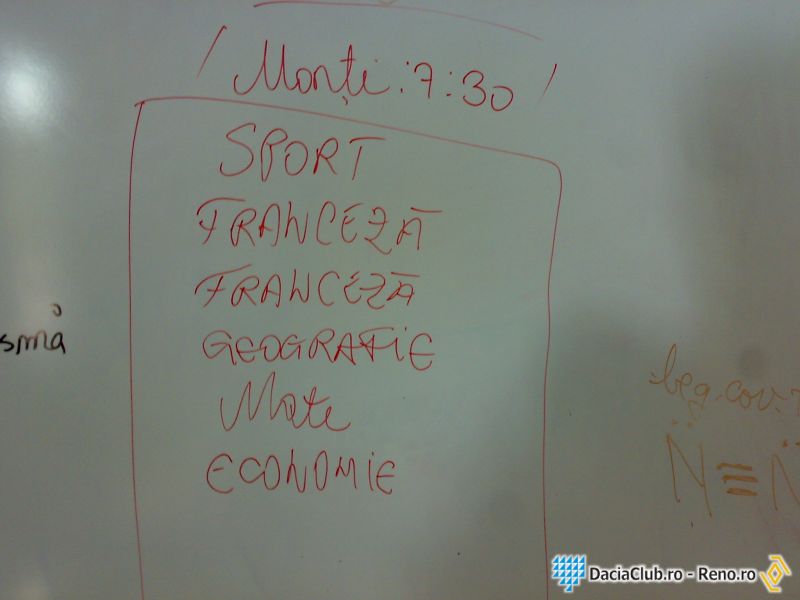 Marți : 7:30
SPORT
FRANCEZĂ
FRANCEZĂ
GEOGRAFIE
Mate
ECONOMIE
smă
leg. cov.
N≡N
DaciaClub.ro - Reno.ro